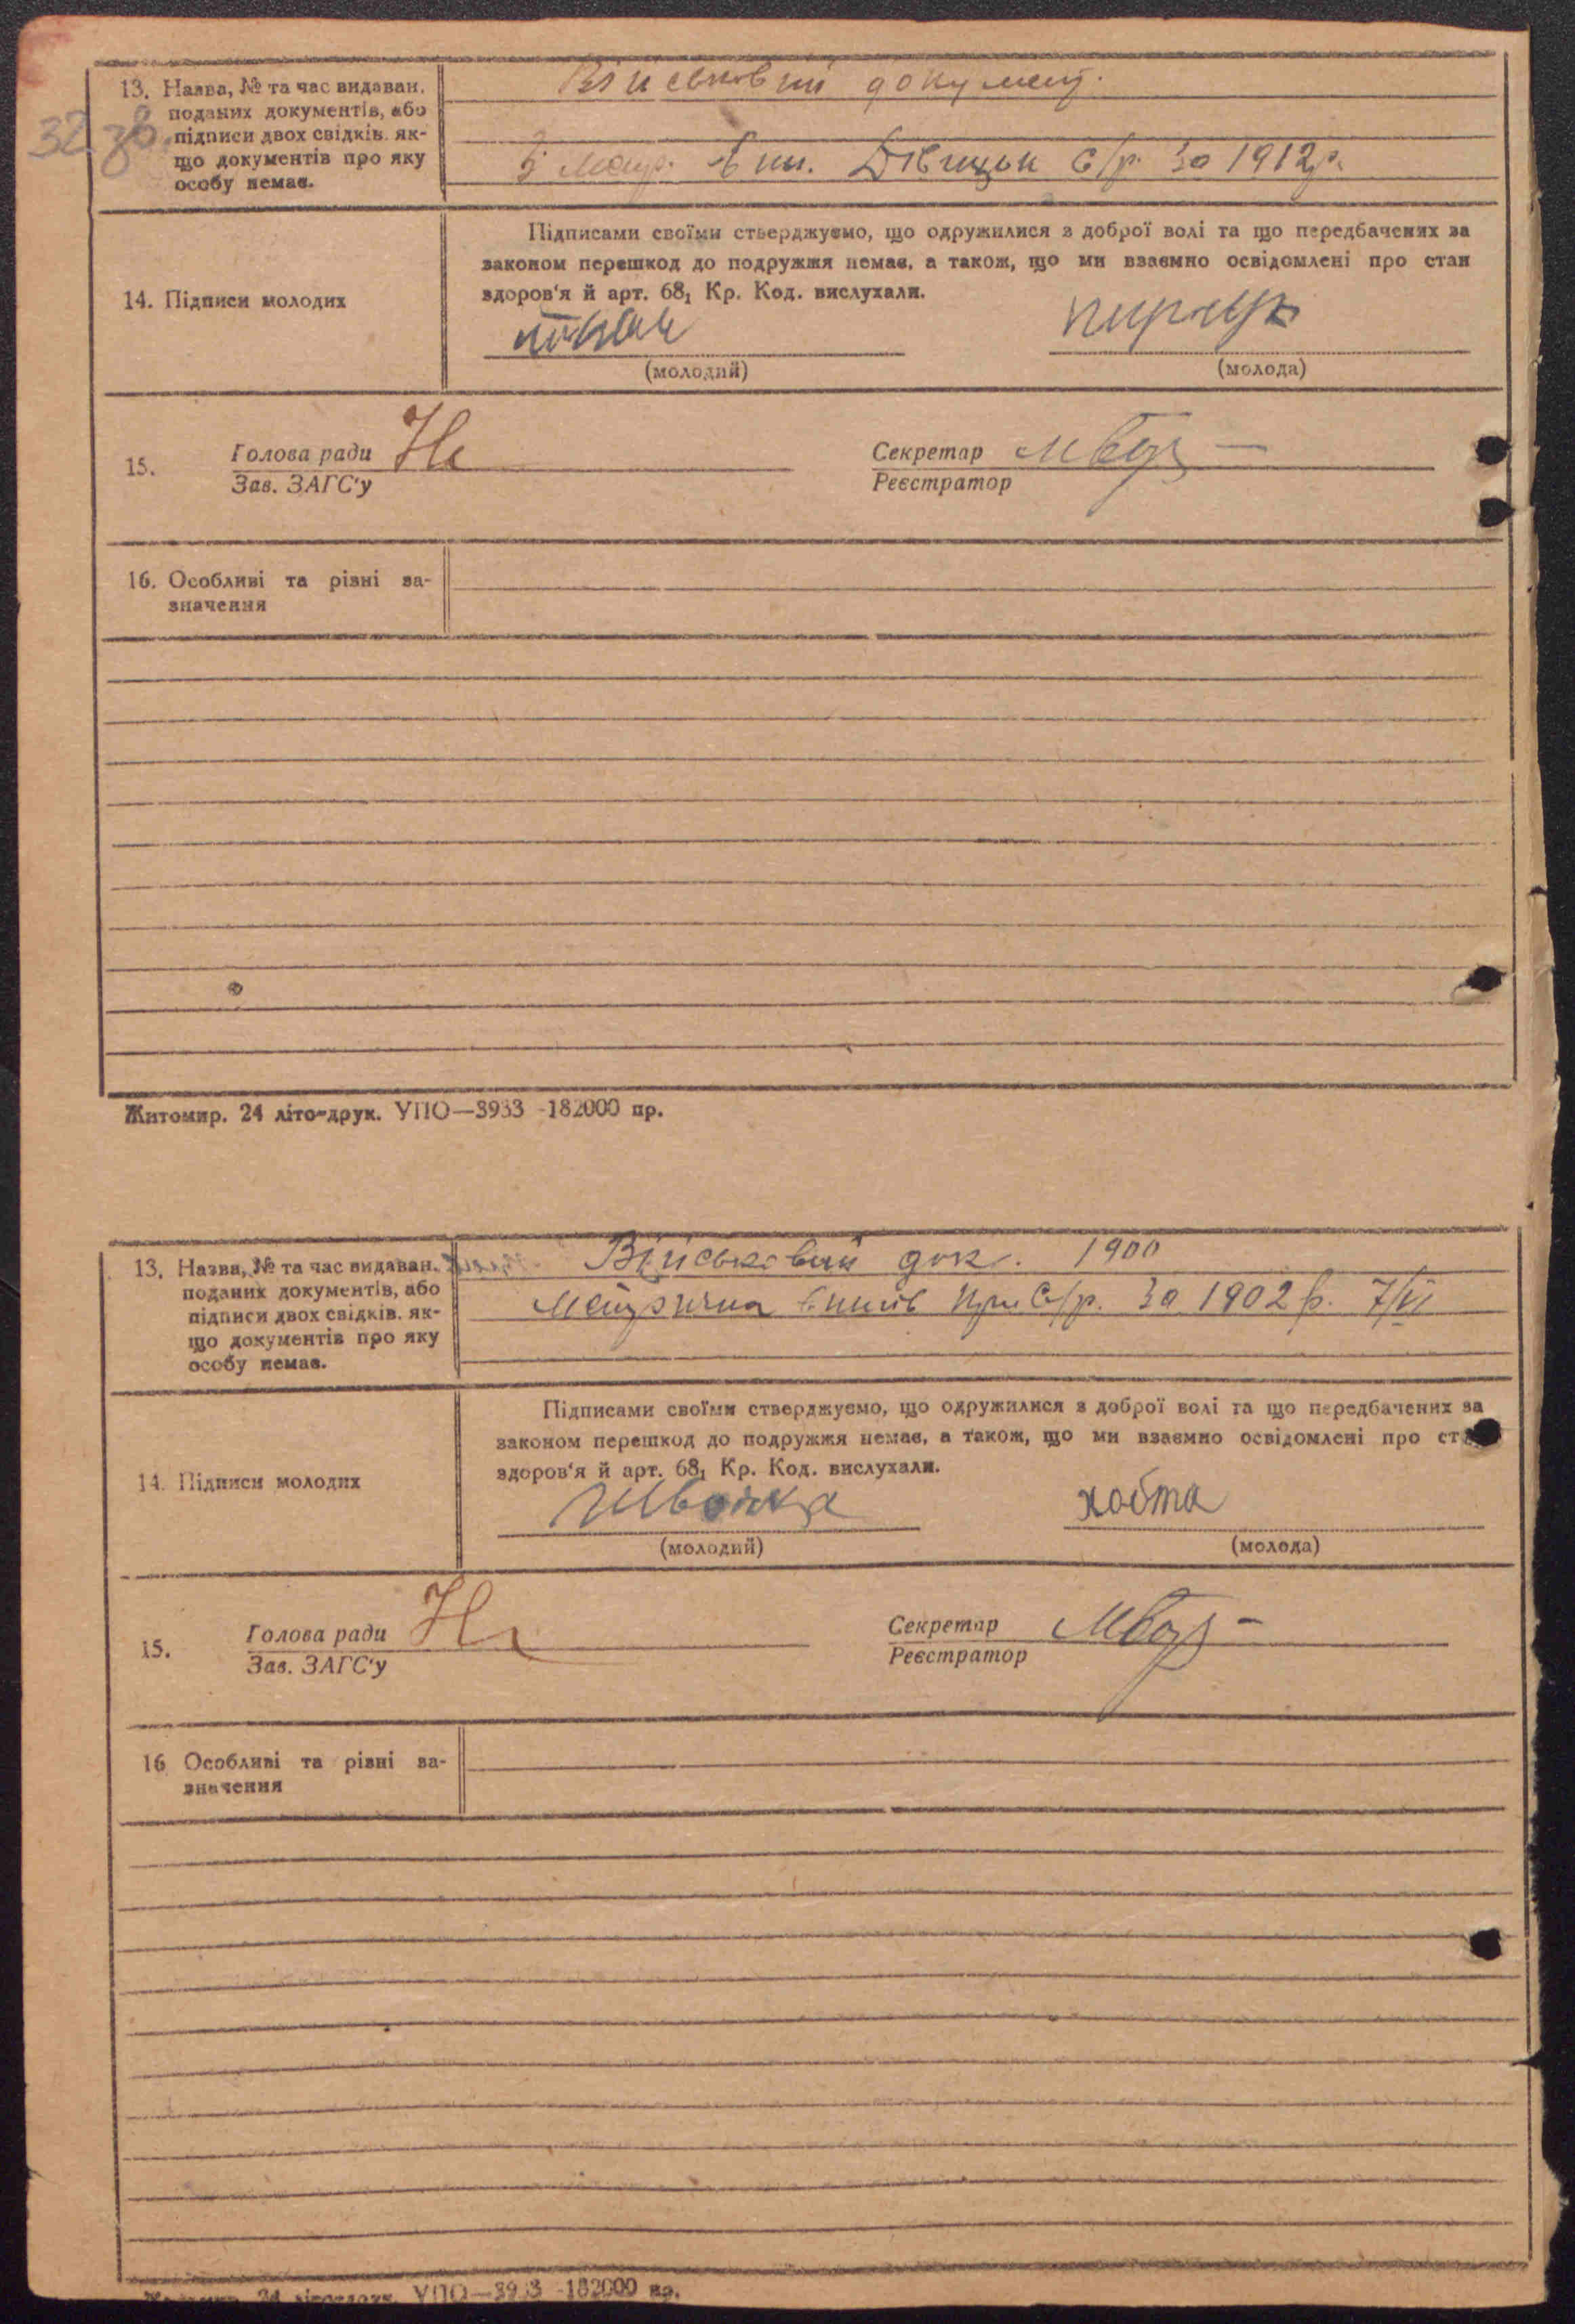 32 зв.
13. Назва, № та час видаван.
поданих документів, або
підписи двох свідків. як-
що документів про яку
особу немає.
Військовий документ.
с/р. за 1912 р.
14. Підписи молодих
Підписами своїми стверджуємо, що одружилися з доброї волі та що передбачених за
законом перешкод до подружжя немає, а також, що ми взаємно освідомлені про стан
здоров'я й арт. 68₁ Кр. Код. вислухали.
(молодий)
(молода)
15.
Голова ради
Зав. ЗАГС'у
Секретар
Реєстратор
16. Особливі та різні за-
значення
Житомир. 24 літо-друк. УПО—3933 -182000 пр.
13. Назва, № та час видаван.
поданих документів, або
підписи двох свідків. як-
що документів про яку
особу немає.
Військовий док. 1900
Метрична с/р. за 1902 р. 7/VI
14. Підписи молодих
Підписами своїми стверджуємо, що одружилися з доброї волі та що передбачених за
законом перешкод до подружжя немає, а також, що ми взаємно освідомлені про ст
здоров'я й арт. 68₁ Кр. Код. вислухали.
хобта
(молодий)
(молода)
15.
Голова ради
Зав. ЗАГС'у
Секретар
Реєстратор
16 Особливі та різні за-
значення
24 УПО—3933 -182000 пр.